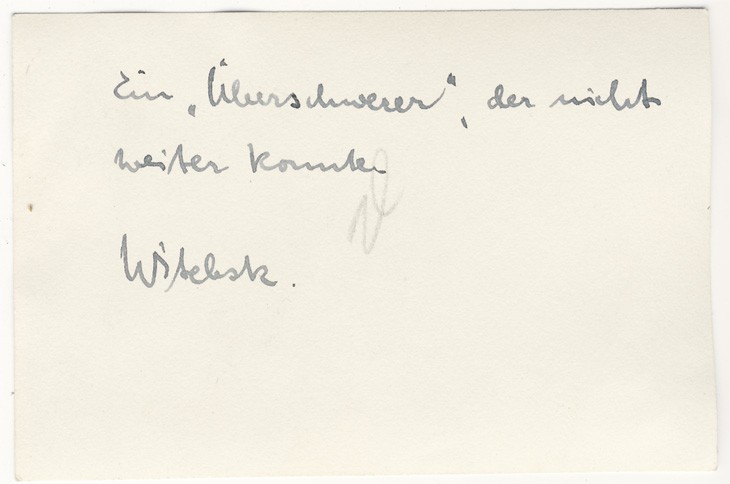 Ein „Überschwerer“, der nicht
weiter konnte
Witebsk.